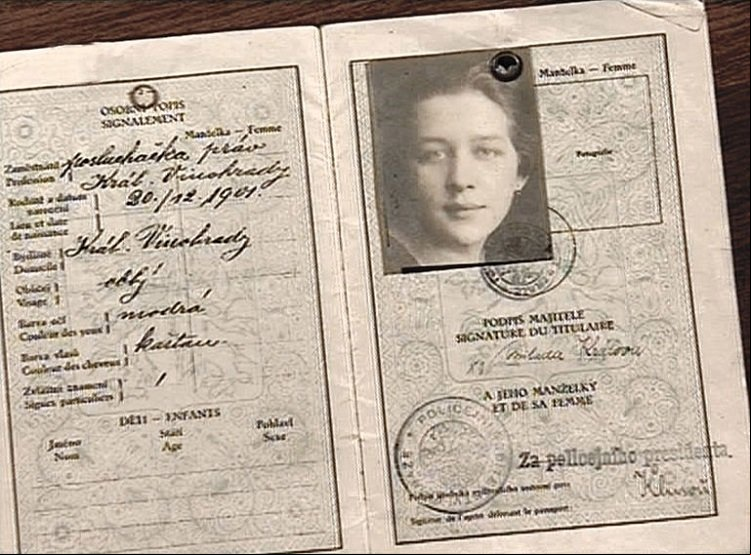 OSOBNÍ POPIS
SIGNALEMENT
Manželka — Femme
Zaměstnání
Profession
posluchačka práv
Rodiště a datum
narození
Lieu et date
de naissance
Král. Vinohrady
20./12. 1901.
Bydliště
Domicile
Král. Vinohrady
Obličej
Visage
oblý
Barva očí
Couleur des yeux
modrá
Barva vlasů
Couleur des cheveux
kaštan.
Zvláštní znamení
Signes particuliers
DĚTI — ENFANTS
Jméno Stáří Pohlaví
Nom Age Sexe
Manželka — Femme
Fotografie
PODPIS MAJITELE
SIGNATURE DU TITULAIRE
Milada
A JEHO MANŽELKY
ET DE SA FEMME
Za policejního presidenta.
Signature de l'agent délivrant le passeport: